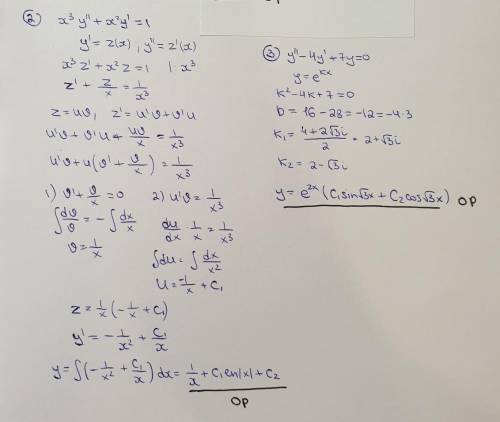 ② x³y'' + x²y' = 1
y' = z(x), y'' = z'(x)
x³z' + x²z = 1 | · x³
z' + z/x = 1/x³
z = uϑ, z' = u'ϑ + ϑ'u
u'ϑ + ϑ'u + uϑ/x = 1/x³
u'ϑ + u(ϑ' + ϑ/x) = 1/x³
1) ϑ' + ϑ/x = 0
∫dϑ/ϑ = -∫dx/x
ϑ = 1/x
2) u'ϑ = 1/x³
du/dx · 1/x = 1/x³
∫du = ∫dx/x²
u = -1/x + C₁
z = 1/x(-1/x + C₁)
y' = -1/x² + C₁/x
y = ∫(-1/x² + C₁/x)dx = 1/x + C₁ ln|x| + C₂
OP
③ y'' - 4y' + 7y = 0
y = e^(kx)
k² - 4k + 7 = 0
D = 16 - 28 = -12 = -4·3
k₁ = (4 + 2√3i)/2 = 2 + √3i
k₂ = 2 - √3i
y = e^(2x)(C₁sin√3x + C₂cos√3x) OP